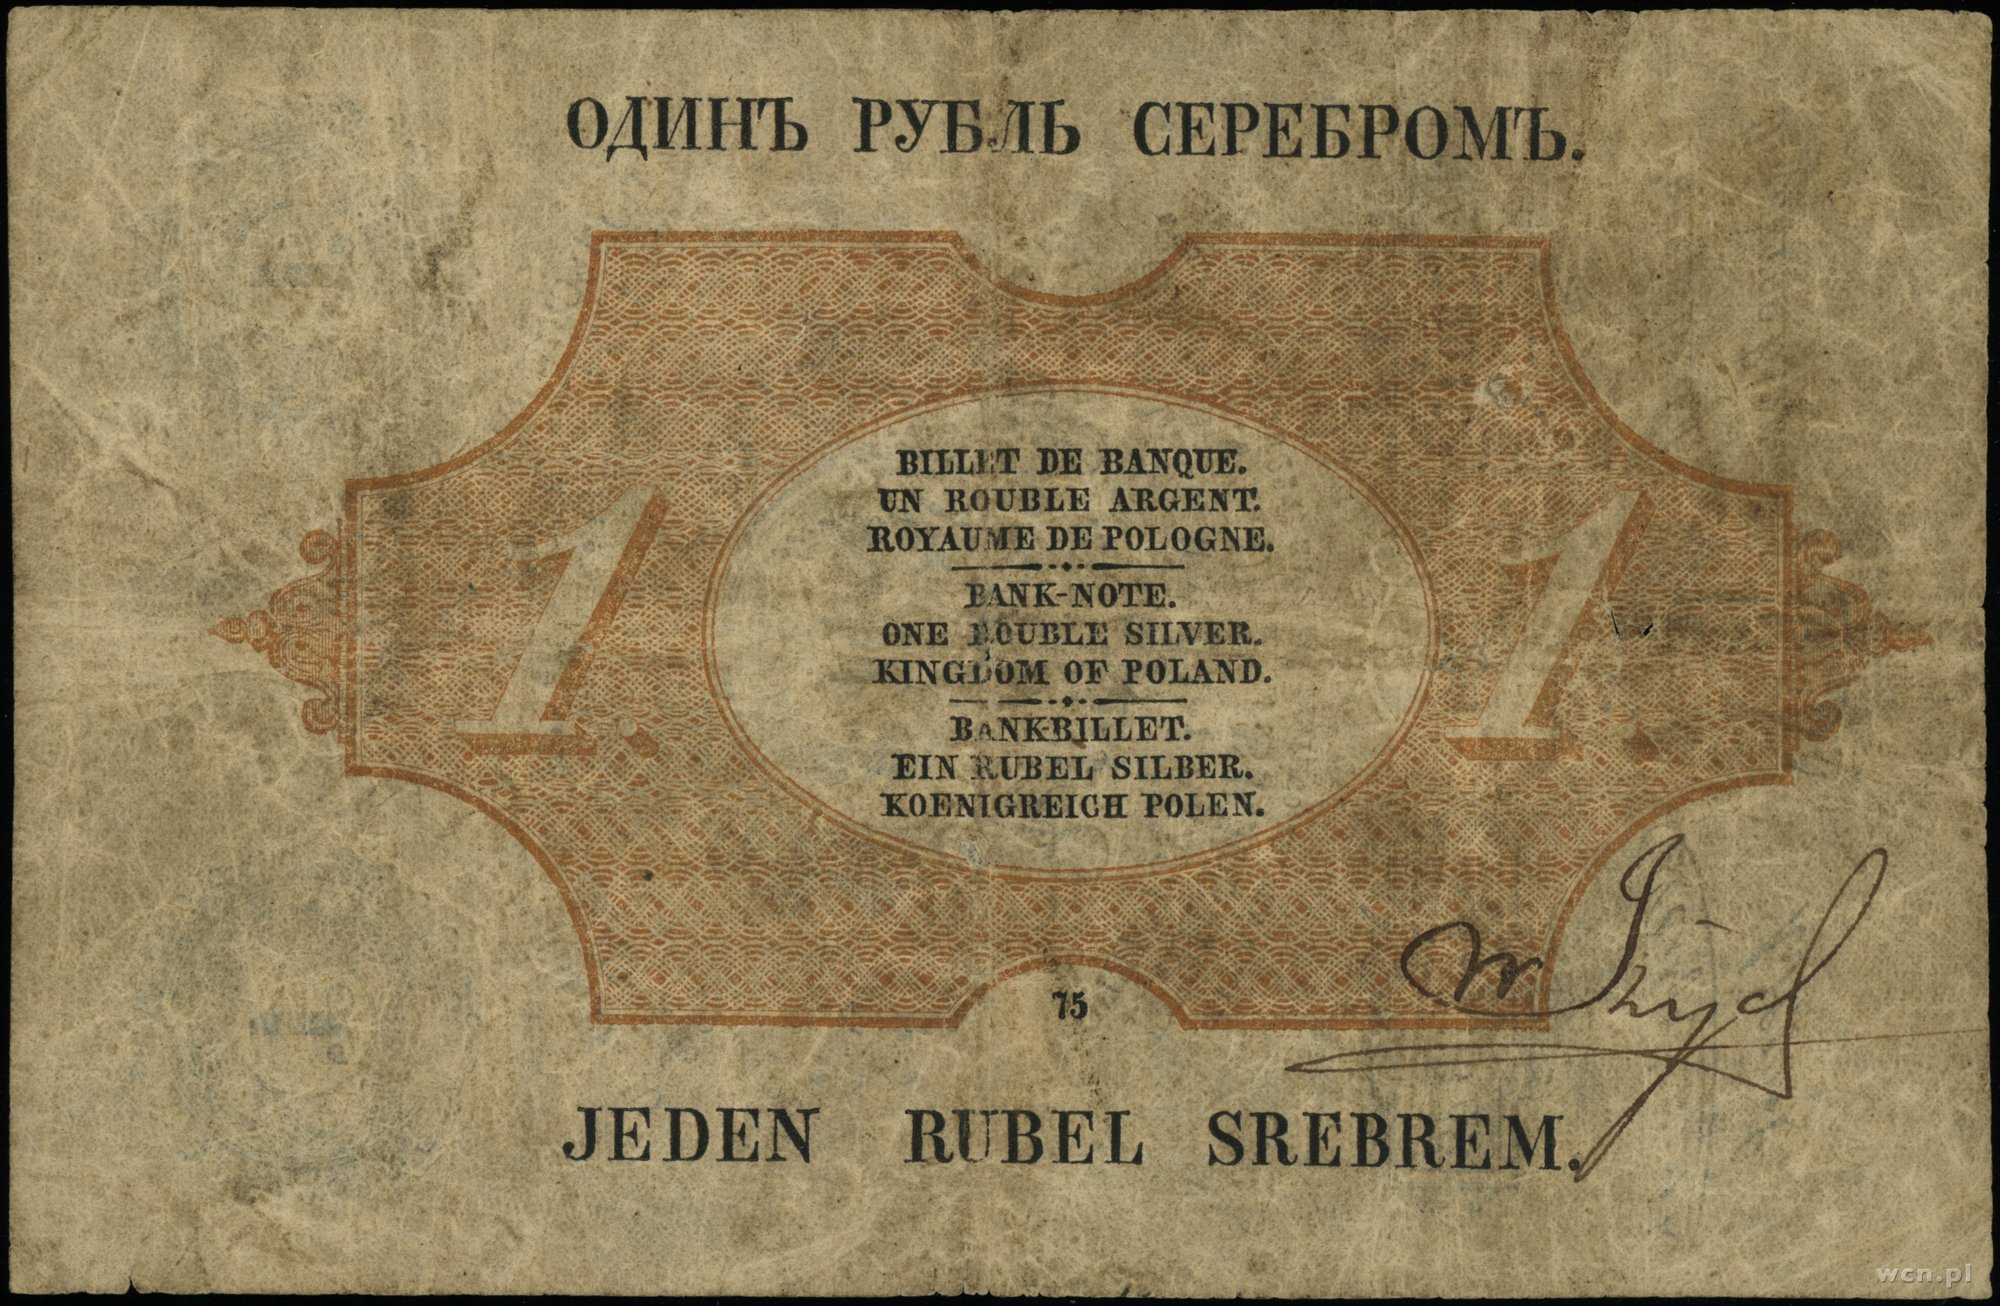 ОДИНЪ РУБЛЬ СЕРЕБРОМЪ.
BILLET DE BANQUE.
UN ROUBLE ARGENT.
ROYAUME DE POLOGNE.
1. 1.
BANK-NOTE.
ONE ROUBLE SILVER.
KINGDOM OF POLAND.
BANKBILLET.
EIN RUBEL SILBER.
KOENIGREICH POLEN.
75
JEDEN RUBEL SREBREM.
wcn.pl